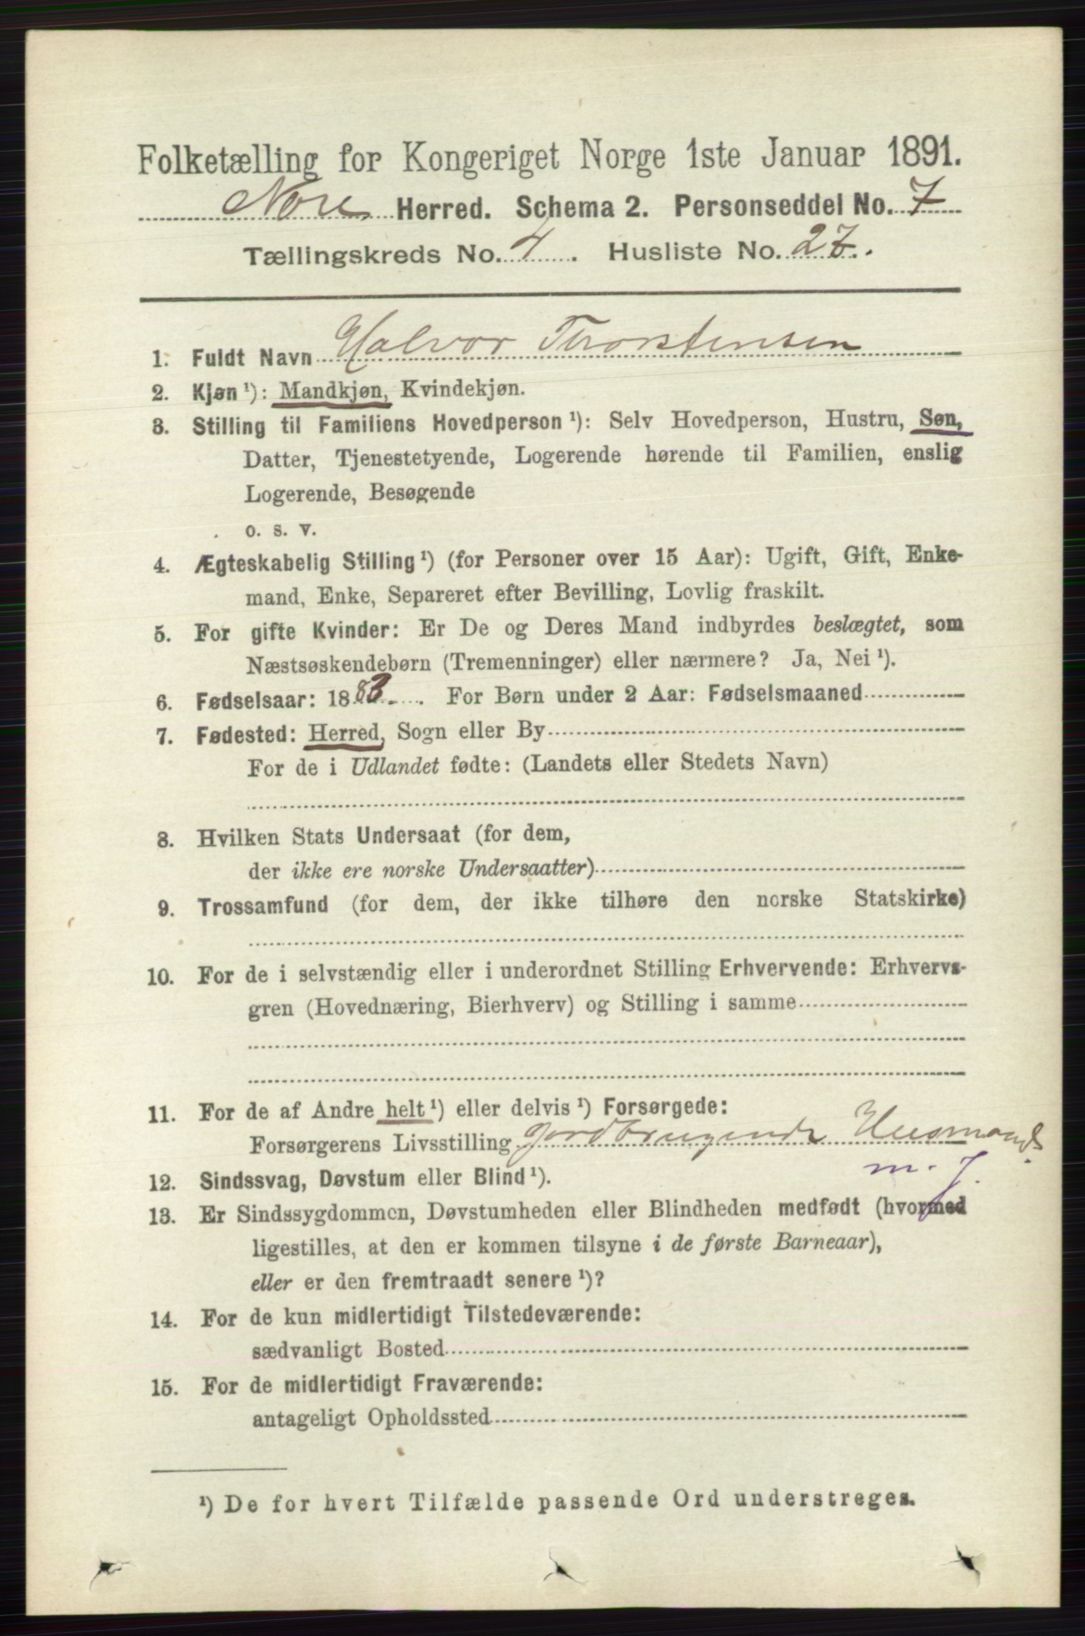 Folketælling for Kongeriget Norge 1ste Januar 1891.
Nore Herred. Schema 2. Personseddel No. 7
Tællingskreds No. 4. Husliste No. 27.
1. Fuldt Navn Halvor Thorstensen
2. Kjøn ¹): Mandkjøn, Kvindekjøn.
3. Stilling til Familiens Hovedperson ¹): Selv Hovedperson, Hustru, Søn,
Datter, Tjenestetyende, Logerende hørende til Familien, enslig
Logerende, Besøgende
o. s. v.
4. Ægteskabelig Stilling ¹) (for Personer over 15 Aar): Ugift, Gift, Enke-
mand, Enke, Separeret efter Bevilling, Lovlig fraskilt.
5. For gifte Kvinder: Er De og Deres Mand indbyrdes beslægtet, som
Næstsøskendebørn (Tremenninger) eller nærmere? Ja, Nei ¹).
6. Fødselsaar: 1883. For Børn under 2 Aar: Fødselsmaaned
7. Fødested: Herred, Sogn eller By
For de i Udlandet fødte: (Landets eller Stedets Navn)
8. Hvilken Stats Undersaat (for dem,
der ikke ere norske Undersaatter)
9. Trossamfund (for dem, der ikke tilhøre den norske Statskirke)
10. For de i selvstændig eller i underordnet Stilling Erhvervende: Erhvervs-
gren (Hovednæring, Bierhverv) og Stilling i samme
11. For de af Andre helt ¹) eller delvis ¹) Forsørgede:
Forsørgerens Livsstilling jordbrugende Husmands
m. J.
12. Sindssvag, Døvstum eller Blind ¹).
13. Er Sindssygdommen, Døvstumheden eller Blindheden medfødt (hvormed
ligestilles, at den er kommen tilsyne i de første Barneaar),
eller er den fremtraadt senere ¹)?
14. For de kun midlertidigt Tilstedeværende:
sædvanligt Bosted
15. For de midlertidigt Fraværende:
antageligt Opholdssted
¹) De for hvert Tilfælde passende Ord understreges.